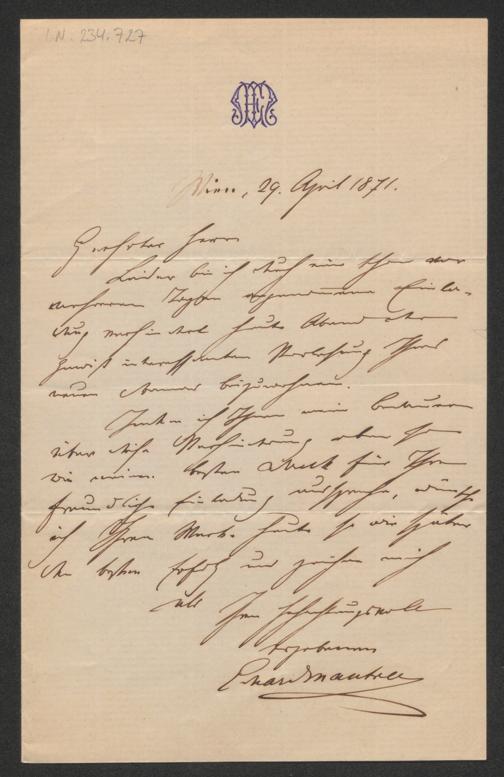 I.N. 234.727
Wien, 29. April 1871.
Geehrter Herr
Leider bin ich durch eine schon vor
mehreren Tagen angenommene Einla-
dung verhindert heute Abend der
gewiß interessanten Vorlesung Ihres
neuen Dramas beizuwohnen.
Indem ich Ihnen mein Bedauern
über diese Verhinderung eben so
wie meinen besten Dank für Ihre
freundliche Einladung ausspreche, wünsche
ich Ihrem Werke heute so wie später
den besten Erfolg und zeichne mich
als Ihr hochachtungsvoll
ergebener